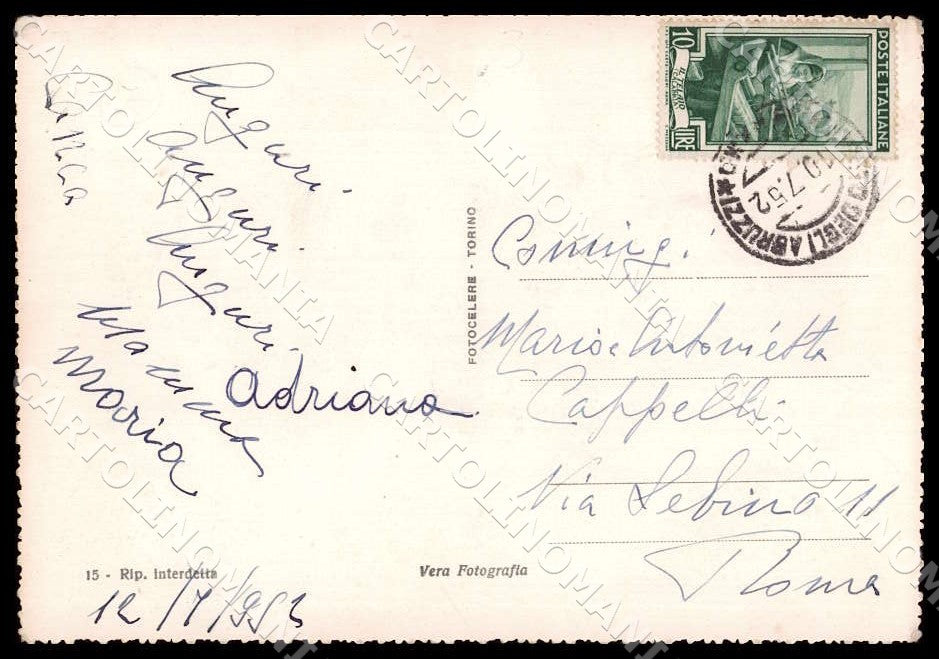 Auguri
auguri
Auguri
Mamma
Maria
Adriana
15 - Rip. interdetta
12/7/952
Vera Fotografia
FOTOCELERE - TORINO
POSTE ITALIANE
10 LIRE
IL TELAIO
DEGLI ABRUZZI
7.52
Coniugi
Mario e Antonietta
Cappelli
Via Sebino 11
Roma
CARTOLINOMANIA